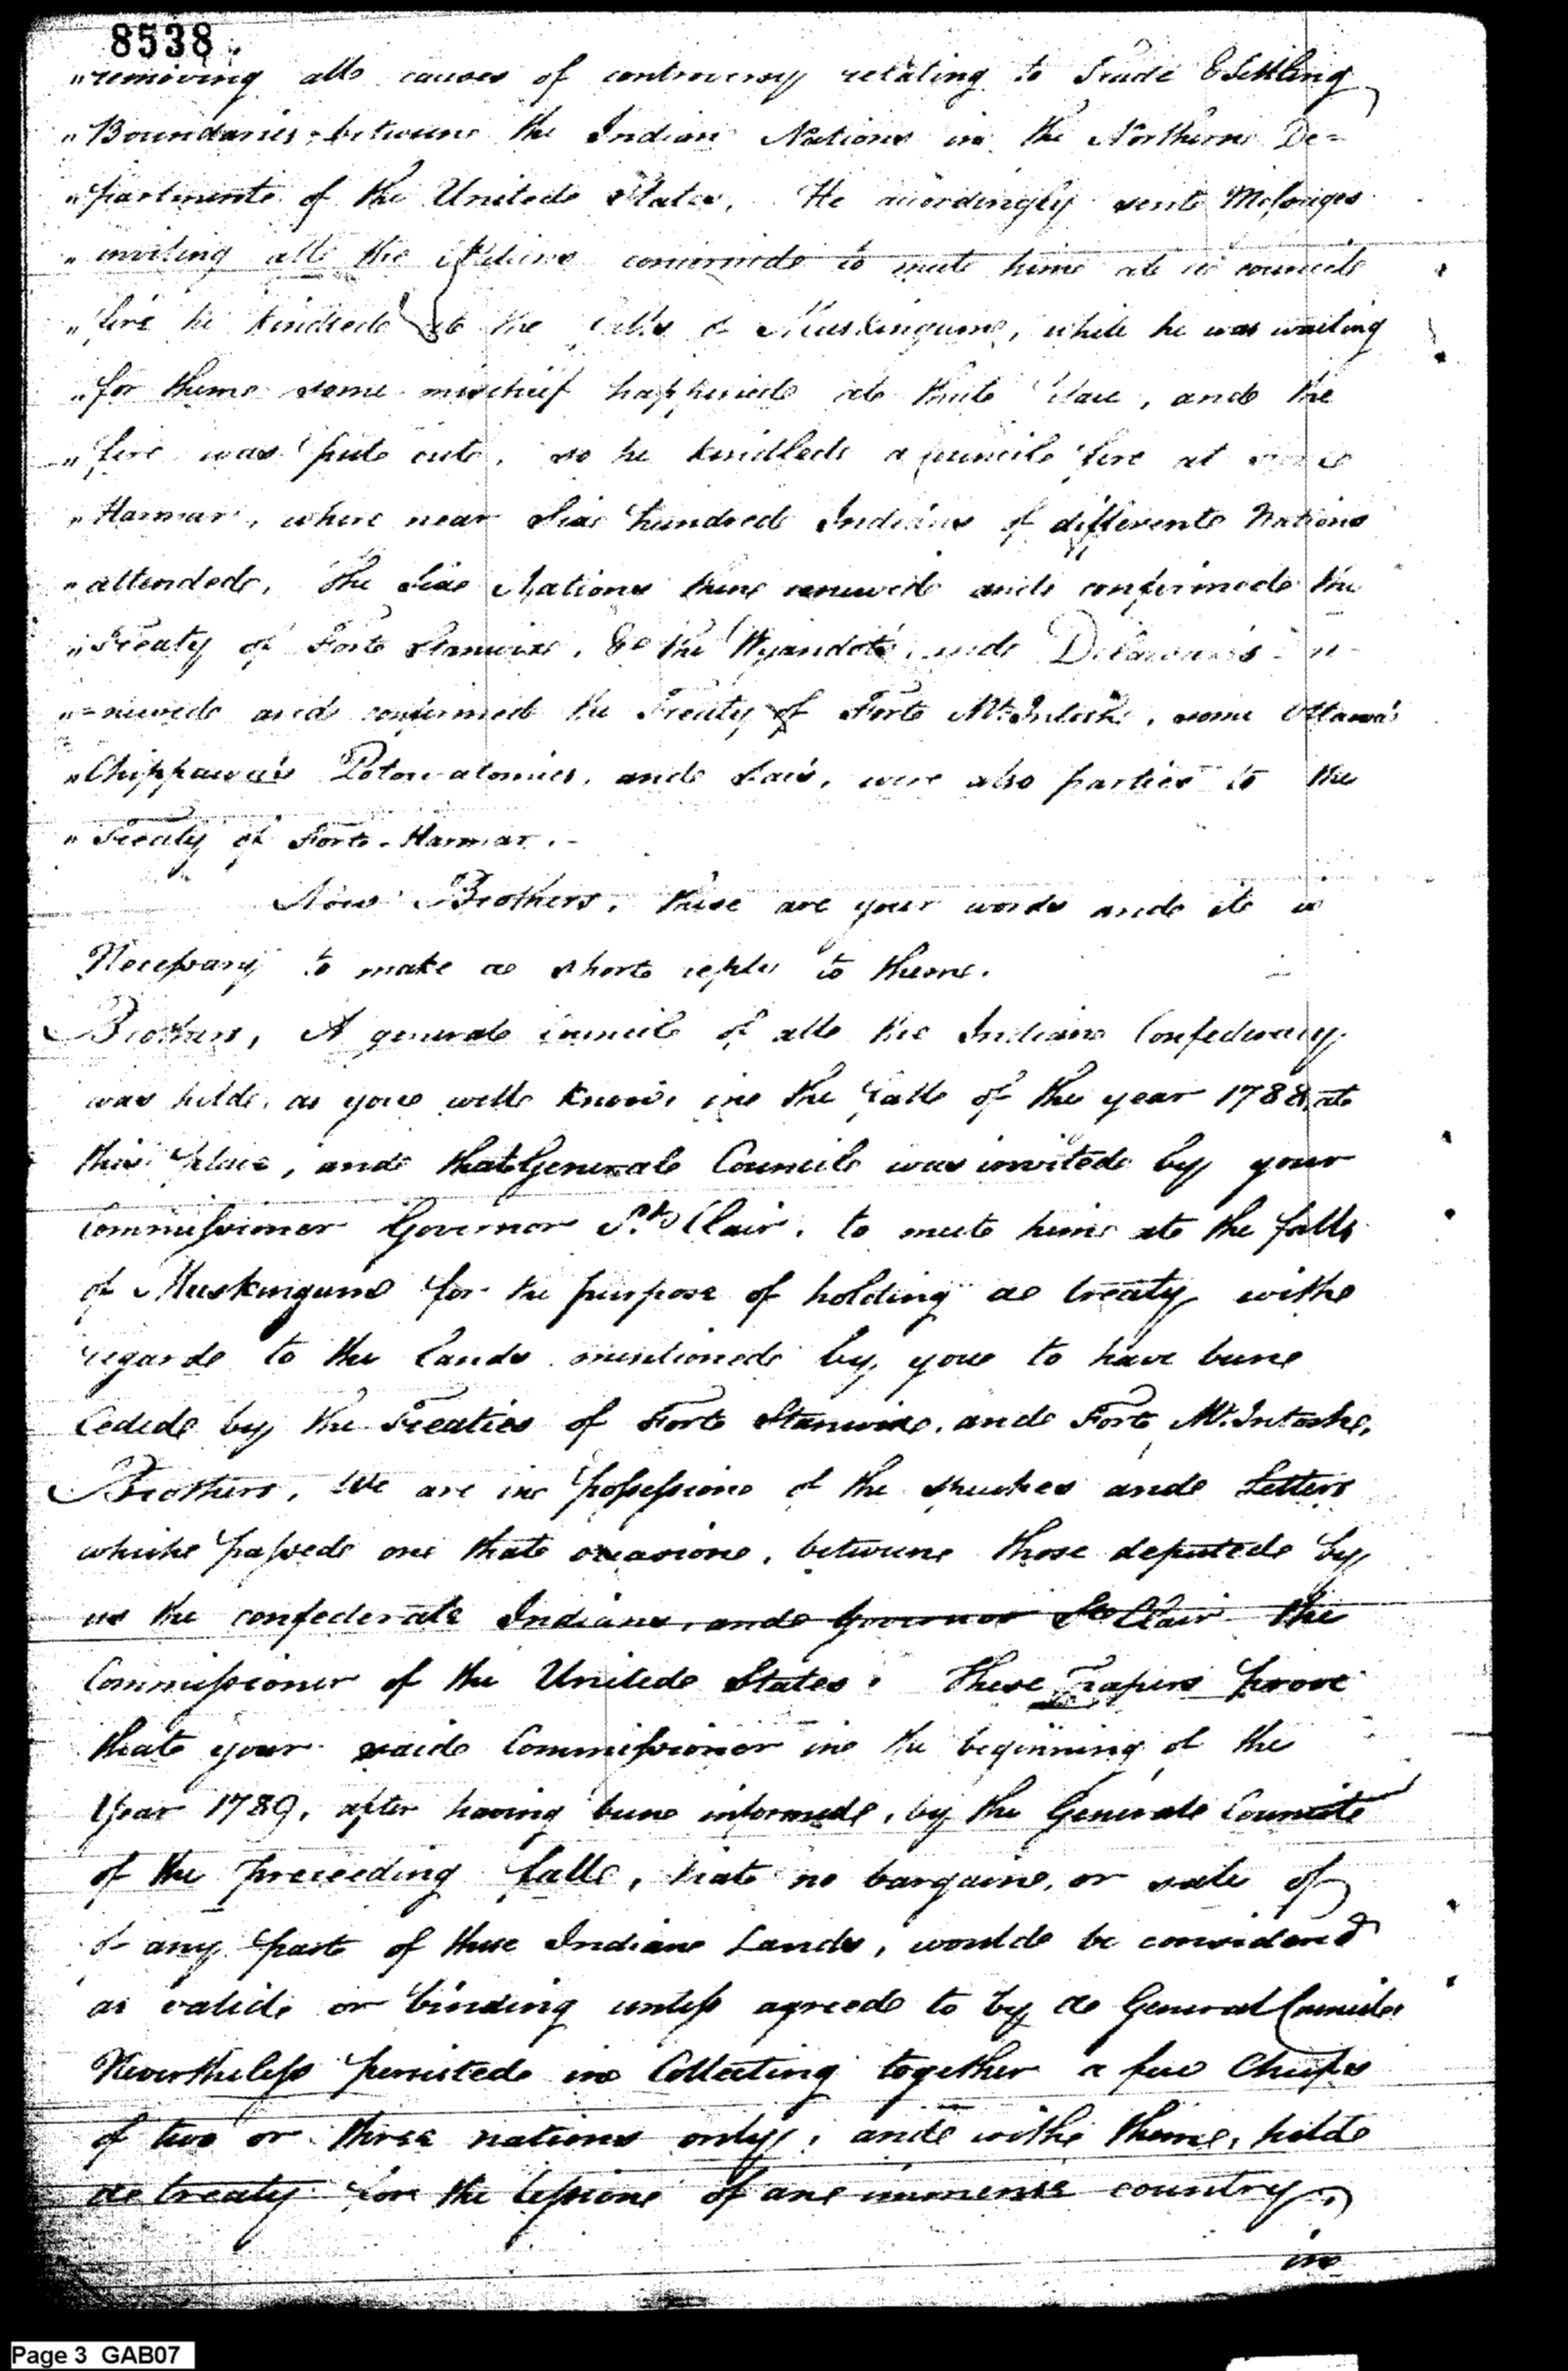 8538
"removing all causes of controversy relating to Trade & Settling
"Boundaries between the Indian Nations in the Northern De=
"partment of the United States. He accordingly sent Messages
"inviting all the Nations concerned to meet him at a council
"fire he kindled at the falls of Muskingum, while he was waiting
"for them some mischief happened at that place, and the
"fire was put out, so he kindled a council fire at
"Harmar, where near Six hundred Indians of different Nations
"attended. The Six Nations then renewed and confirmed the
"Treaty of Fort Stanwix, & the Wyandots and Delawares re-
"=newed and confirmed the Treaty of Fort McIntosh, some Ottawa's
"Chippawa's Potowatomies, and Sacs, were also parties to the
"Treaty of Fort Harmar. -
Now Brothers, these are your words and it is
Necessary to make a short reply to them.
Brothers, A general council of all the Indian Confederacy
was held, as you well know, in the fall of the year 1788 at
this place, and that General Council was invited by your
Commissioner Governor St. Clair, to meet him at the falls
of Muskingum for the purpose of holding a treaty with
regard to the Lands mentioned by you to have been
Ceded by the Treaties of Fort Stanwix, and Fort McIntosh.
Brothers, We are in possession of the speeches and Letters
which passed on that occasion, between those deputed by
us the confederate Indians, and Governor St. Clair the
Commissioner of the United States. These Papers prove
that your said Commissioner in the beginning of the
Year 1789, after having been informed, by the General Council
of the preceeding fall, that no bargain, or sale of
of any part of these Indian Lands, would be considered
as valid or binding unless agreed to by a General Council
Nevertheless persisted in Collecting together a few Chiefs
of two or three nations only, and with them, held
a treaty for the cession of an immense country,
in
Page 3 GAB07